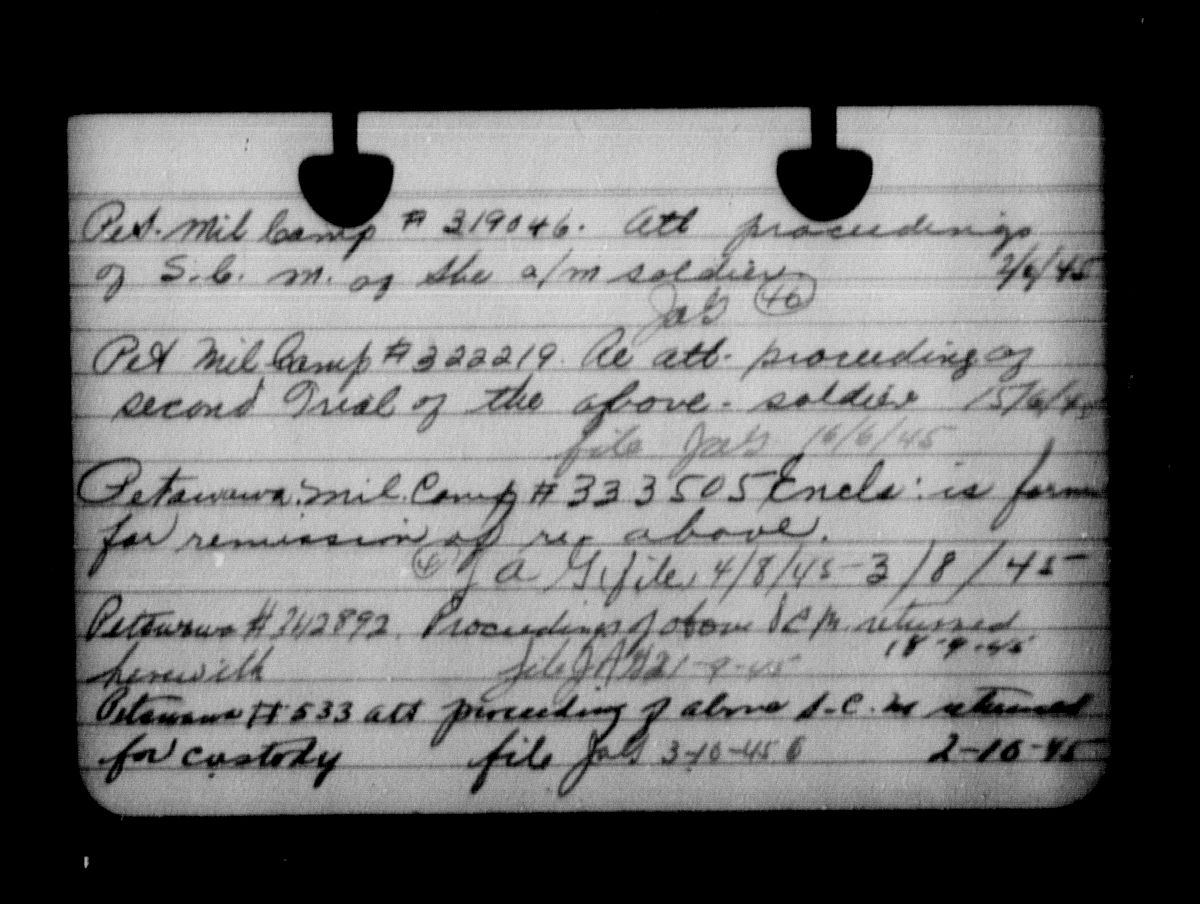 Pet. Mil Camp # 319046. Att proceedings
of S.C. M. of the a/m soldier. 2/6/45
JaG 46
Pet Mil Camp # 322219. Re att. proceeding of
second Trial of the above. soldier 15/6/45
file JaG 16/6/45
Petawawa. Mil. Camp # 333505 Encls: is form
for remission of re. above.
JaG. file 4/8/45 - 3/8/45
Petawawa # 342892. Proceedings of above S C M. returned
herewith file JAG 21-9-45 18-9-45
Petawawa # 533 att proceeding of above S.C.M returned
for custody file JaG 3-10-45 2-10-45